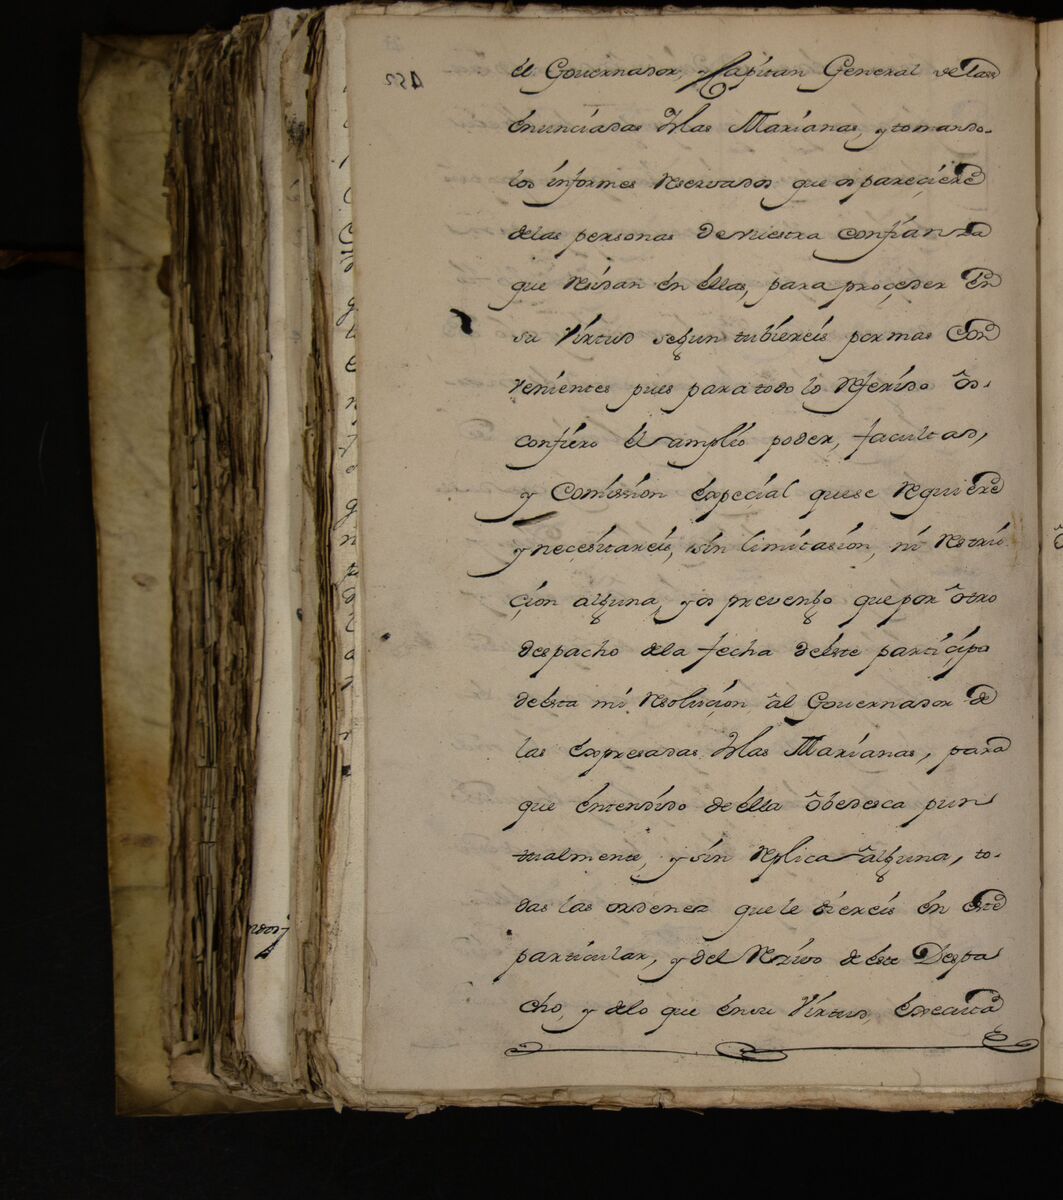 el Governador, y Capitan General de las
enunciadas Yslas Marianas, y tomando
los informes reservados que os pareciere
de las personas de vuestra confianza
que residan en ellas, para proceder en
su virtud segun tubiereis por mas con
veniente; pues para todo lo referido os
confiero el amplio poder, facultad,
y comission expecial que se requiere
y necesitareis, sin limitasion, ni restric
cion alguna, y os prevengo que por otro
despacho de la fecha de este participo
de esta mi resolucion al Governador de
las expresadas Yslas Marianas, para
que entendido de ella obedesca pun
tualmente, y sin replica alguna, to-
das las ordenes que le diereis en este
particular, y del recivo de este Despa
cho, y de lo que en su virtud, executa